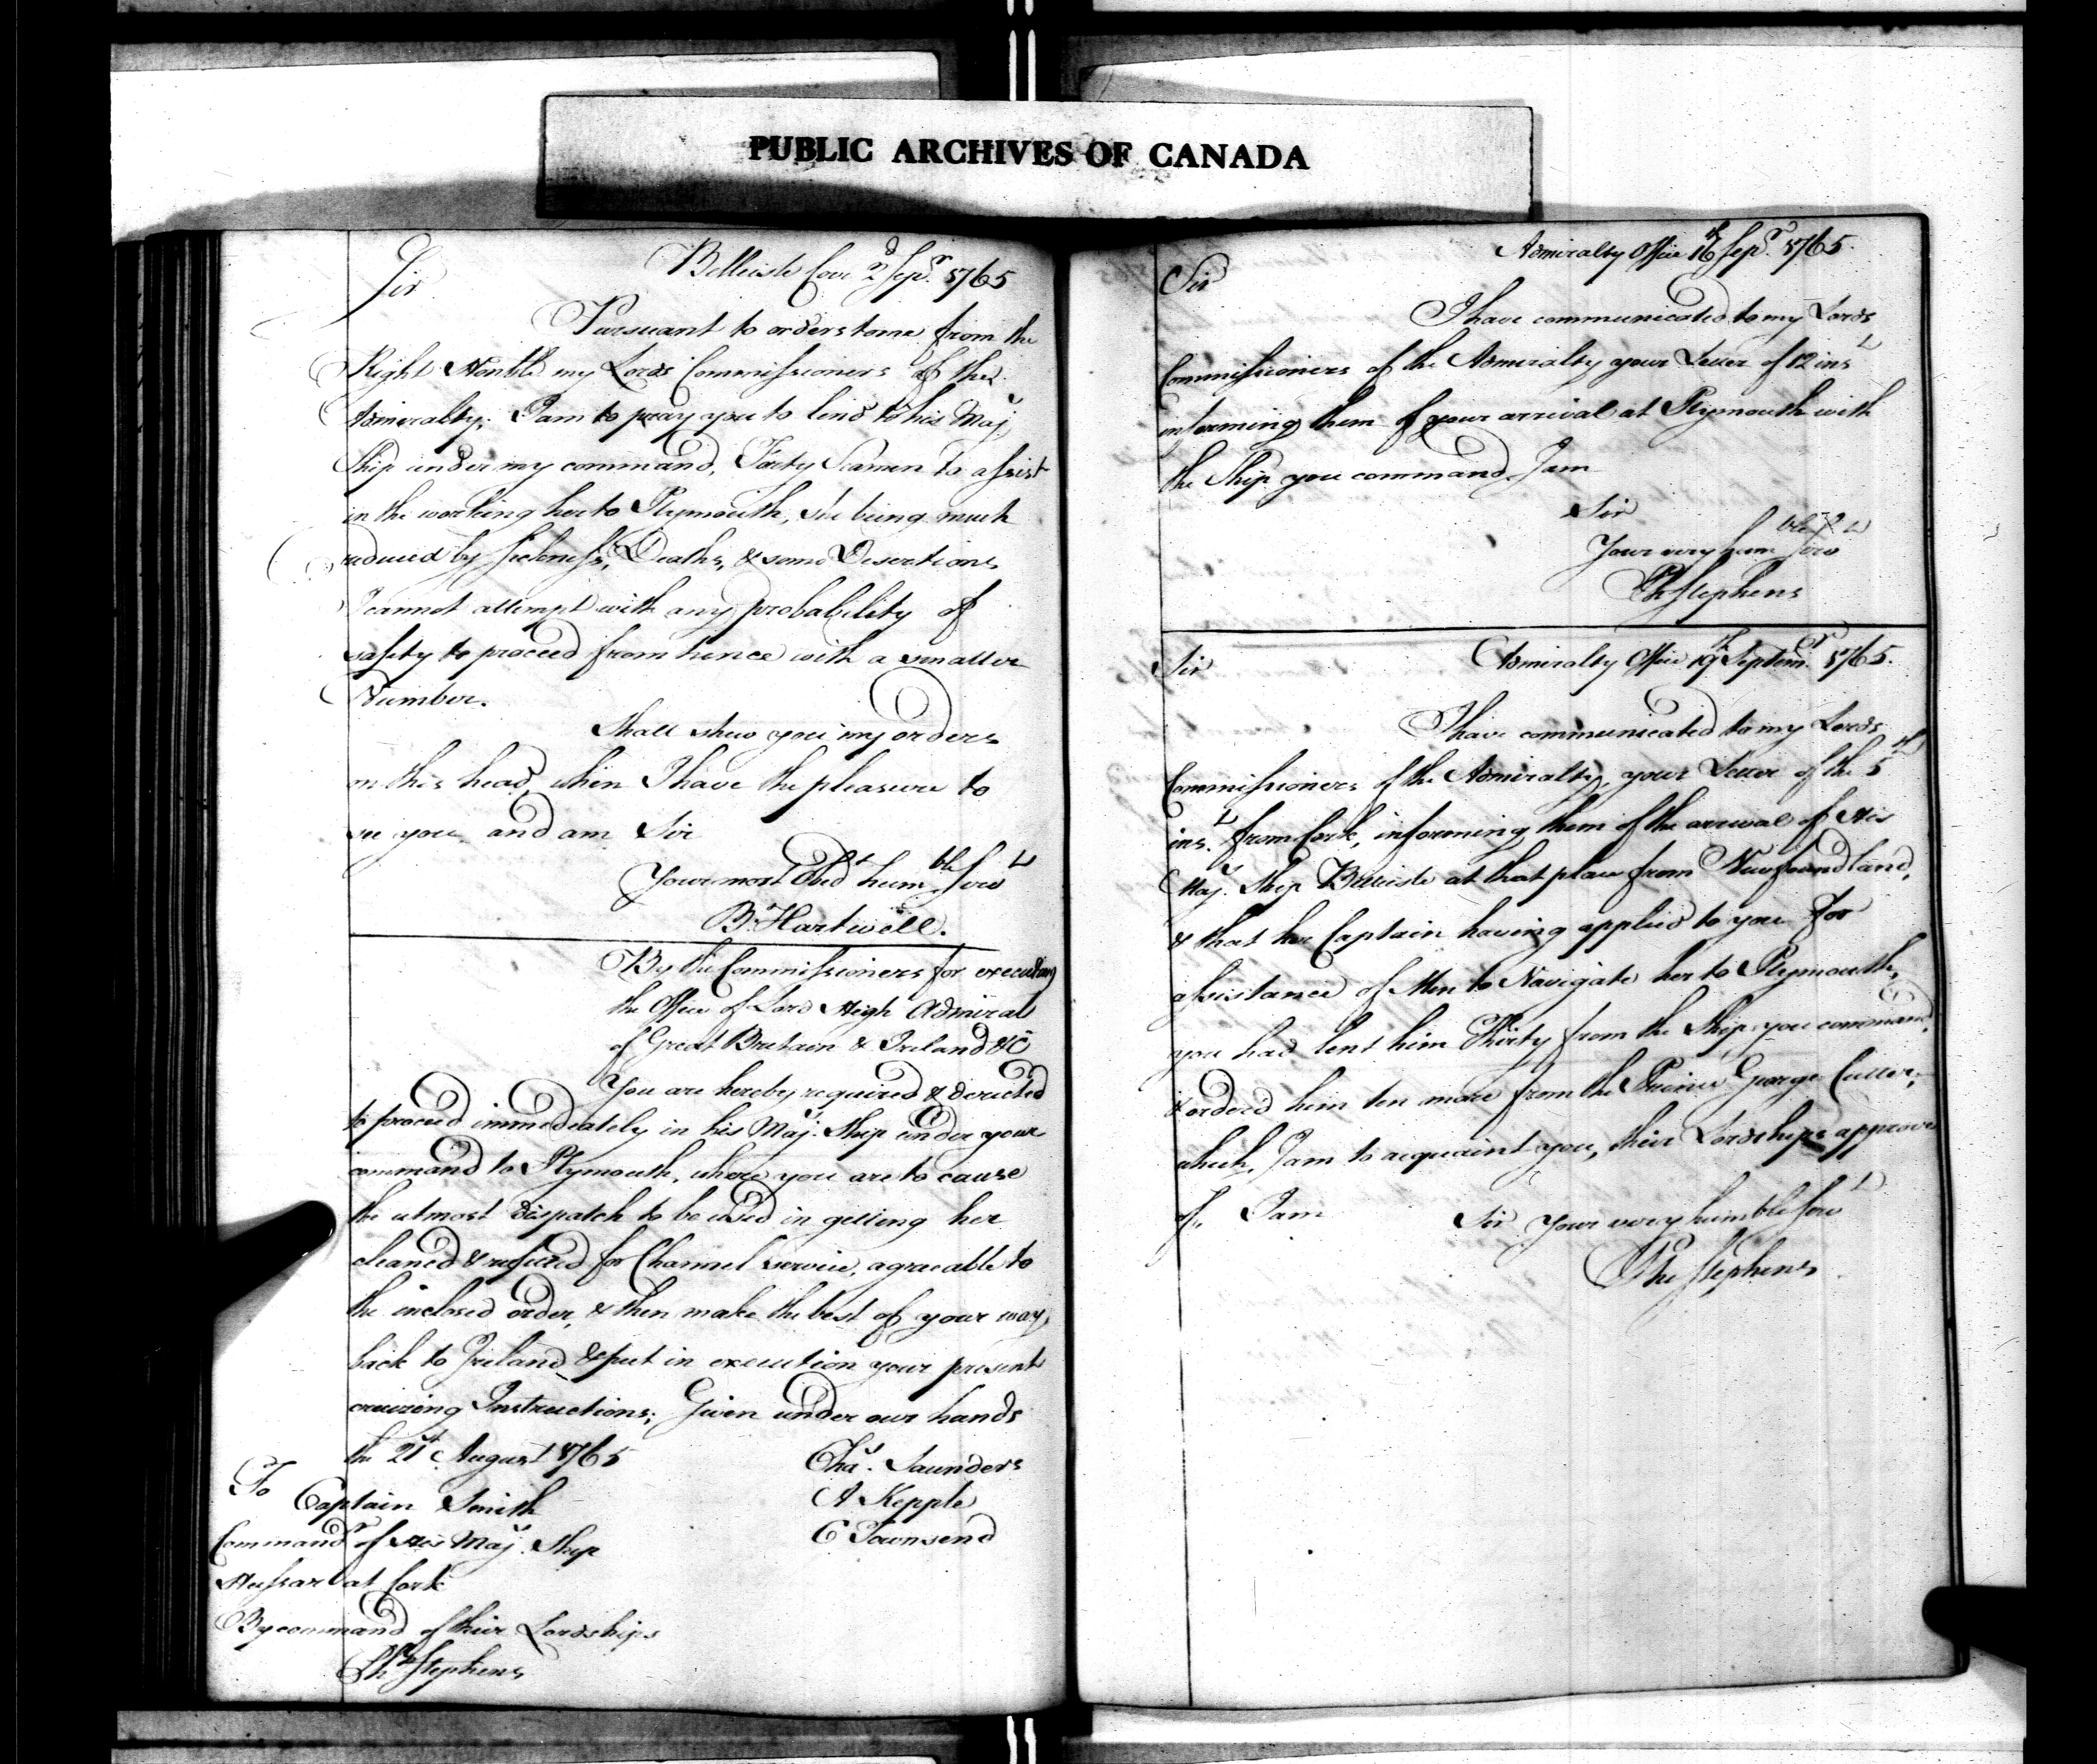 PUBLIC ARCHIVES OF CANADA
Belleisle Cove 2d Sepr. 1765
Sir
Pursuant to orders to me from the
Right Honble my Lords Commissioners of the
Admiralty; I am to pray you to lend to his Majs
Ship under my command, Forty Seamen to assist
in the working her to Plymouth, she being much
reduced by Sickness, Deaths, & some Desertions
I cannot attempt with any probability of
safety to proceed from hence with a smaller
Number.
Shall shew you my orders
on this head, when I have the pleasure to
see you and am Sir
Your most Obedt humble servt
B. Hartwell.
By the Commissioners for executing
the Office of Lord High Admiral
of Great Britain & Ireland &c
You are hereby required & directed
to proceed immediately in his Majs. Ship under your
command to Plymouth, where you are to cause
the utmost dispatch to be used in getting her
cleaned & refitted for Channel service, agreeable to
the inclosed order, & then make the best of your way
back to Ireland & put in execution your present
cruizing Instructions; Given under our hands
the 21st August 1765
Chas. Saunders
To Captain Smith
A Kepple
Commandr of His Majs. Ship
C Townsend
Hussar at Cork
By command of their Lordships
Php Stephens
Admiralty Office 16th Sepr. 1765.
Sir
I have communicated to my Lords
Commissioners of the Admiralty your Letter of 12 inst
informing them of your arrival at Plymouth with
the Ship you command. I am
Sir
Your very humble servt
Ph Stephens
Admiralty Office 19th Septemr. 1765.
Sir
I have communicated to my Lords
Commissioners of the Admiralty, your Letter of the 5th
inst. from Cork, informing them of the arrival of His
Majs. Ship Belleisle at that place from Newfoundland,
& that her Captain having applied to you for
assistance of Men to Navigate her to Plymouth,
you had lent him Thirty from the Ship you command,
& orderd him ten more from the Prince George Cutter;
which, I am to acquaint you, their Lordships approve
of, I am
Sir Your very humble servt
Phe Stephens